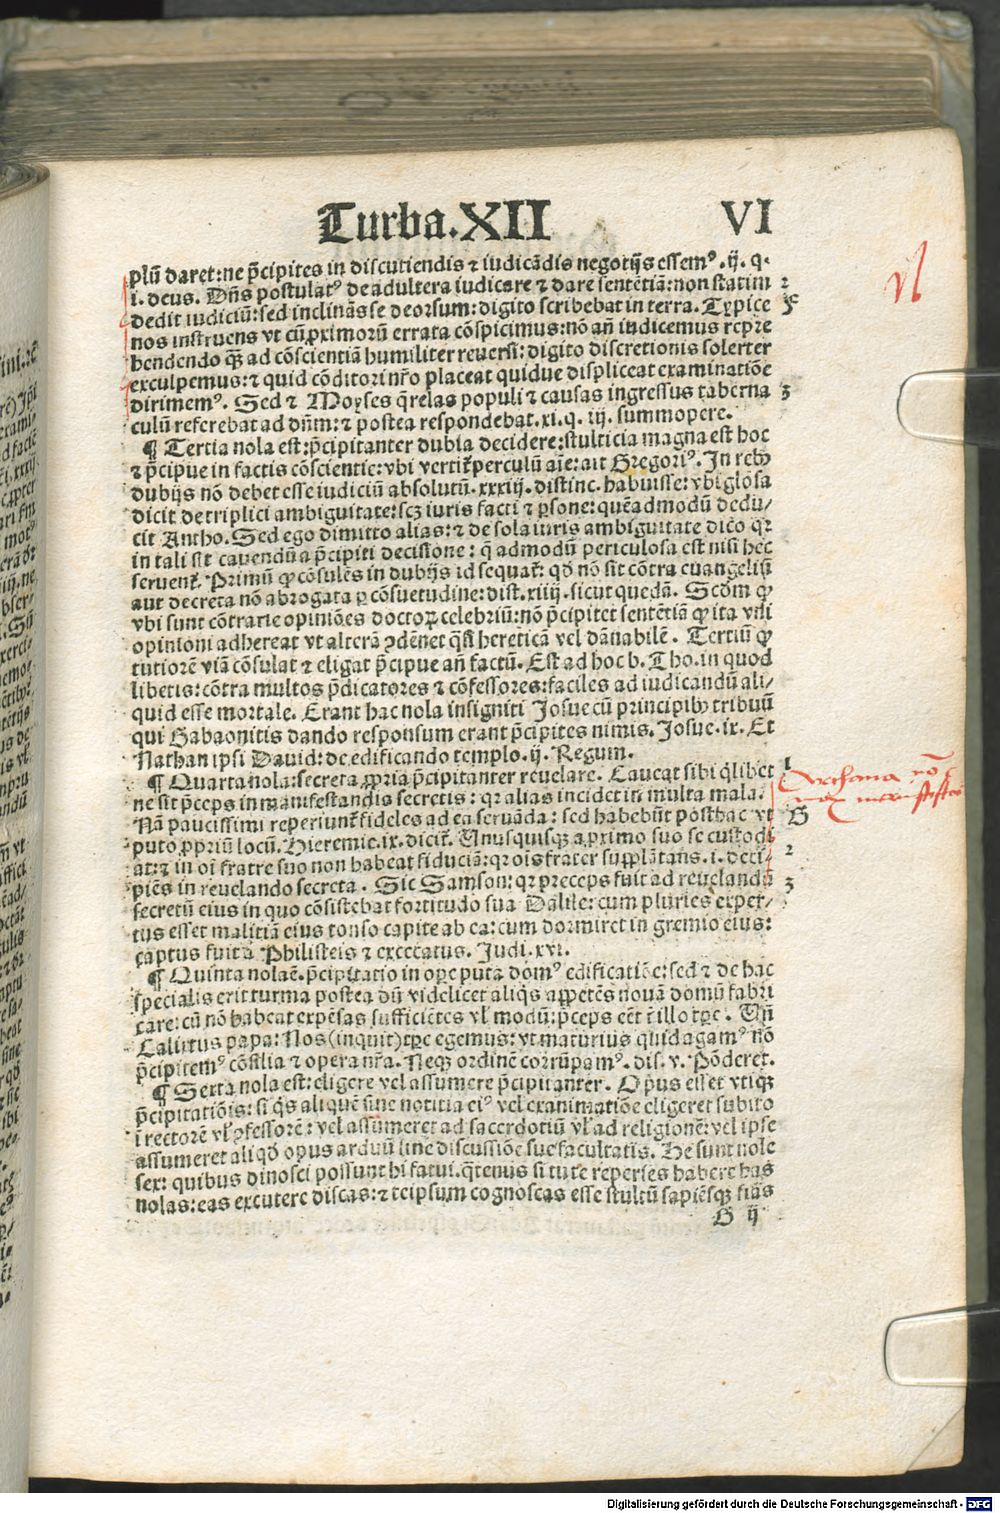 Turba.XII VI
plū daret: ne p̄cipites in discutiendis ⁊ iudicādis negotijs essemꝰ .ij. q.
i. deus. Dn̄s postulatꝰ de adultera iudicare ⁊ dare sentētiā: non statim 2
dedit iudiciū: sed inclinās se deorsum: digito scribebat in terra. Typice
nos instruens vt cū ꝓximorū errata cōspicimus: nō añ iudicemus repre
hendendo qꝫ ad cōscientiā humiliter reuersi: digito discretionis solerter
exculpemus: ⁊ quid cōditori nr̄o placeat quidue displiceat examinatiōe
dirimemꝰ. Sed ⁊ Moyses q̄relas populi ⁊ causas ingressus taberna 3
culū referebat ad dn̄m: ⁊ postea respondebat. xi. q. iij. summopere.
¶ Tertia nola est: p̄cipitanter dubia decidere: stulticia magna est hoc
⁊ p̄cipue in factis cōscientie: vbi vertit̄ perculū aīe: ait Gregoriꝰ. In rebꝰ
dubijs nō debet esse iudiciū absolutū. xxxiij. distinc. habuisse: vbi glosa
dicit de triplici ambiguitate: scꝫ iuris facti ⁊ ꝑsone: quēadmodū dedu-
cit Antho. Sed ego dimitto alias: ⁊ de sola iuris ambiguitate dico qꝛ
in tali sit cauendū a p̄cipiti decisione: q̄ admodū periculosa est nisi hec
seruent̄. Primū ꝙ cōsulēs in dubijs id sequat̄: qd̄ nō sit cōtra euangeliū
aut decreta nō abrogata ꝑ cōsuetudine: dist. xiiij. sicut quedā. Scdm̄ ꝙ
vbi sunt cōtrarie opiniōes doctoꝝ celebriū: nō p̄cipitet sentētiā ꝙ ita vni
opinioni adhereat vt alterā ꝯdēnet q̄si hereticā vel dānabilē. Tertiū ꝙ
tutiorē viā cōsulat ⁊ eligat p̄cipue añ factū. Est ad hoc b. Tho. in quod
libetis: cōtra multos p̄dicatores ⁊ cōfessores: faciles ad iudicandū ali/
quid esse mortale. Erant hac nola insigniti Josue cū principibꝰ tribuū
qui Gabaonitis dando responsum erant p̄cipites nimis. Josue. ix. Et
Nathan ipsi Dauid: de edificando templo. ij. Regum.
¶ Quarta nola: secreta ꝓpria p̄cipitanter reuelare. Caueat sibi q̄libet 1
ne sit p̄ceps in manifestandis secretis: qꝛ alias incidet in multa mala.
Nā paucissimi reperiunt̄ fideles ad ea seruāda: sed habebūt posthac vt G
puto ꝓpriū locū. Hieremie. ix. dicit̄. Vnusquisqꝫ a ꝓximo suo se custodi
at: ⁊ in oī fratre suo non habeat fiduciā: qꝛ oīs frater supplātans. i. deci- 2
piēs in reuelando secreta. Sic Samson: qꝛ preceps fuit ad reuelandū 3
secretū eius in quo cōsistebat fortitudo sua Dalile: cum pluries exper/
tus esset malitiā eius tonso capite ab ea: cum dormiret in gremio eius:
captus fuit a Philisteis ⁊ excecatus. Judi. xvi.
¶ Quinta nola ē. p̄cipitatio in oꝑe puta domꝰ edificatiōe: sed ⁊ de hac
specialis erit turma postea dū videlicet aliq̄s appetēs nouā domū fabri
care: cū nō habeat expēsas sufficiētes vl̄ modū: p̄ceps eēt ī illo tꝑe. Vn̄
Calixtus papa: Nos (inquit) tꝑe egemus: vt maturius quid agamꝰ nō
p̄cipitemꝰ cōsilia ⁊ opera nr̄a. Neqꝫ ordinē corrūpamꝰ. dis. v. Pōderet.
¶ Sexta nola est: eligere vel assumere p̄cipitanter. Opus esset vtiqꝫ
p̄cipitatiōis: si q̄s aliquē sine notitia eiꝰ vel exanimatiōe eligeret subito
ī rectorē vl̄ ꝓfessorē: vel assūmeret ad sacerdotiū vl̄ ad religionē: vel ipse
assumeret aliqd̄ opus arduū sine discussiōe sue facultatis. He sunt nole
sex: quibus dinosci possunt hi fatui. q̄tenus si tute reperies habere has
nolas: eas excutere discas: ⁊ teipsum cognoscas esse stultū sapiēsqꝫ fias
G ij
VI
Archana nō
Digitalisierung gefördert durch die Deutsche Forschungsgemeinschaft - DFG